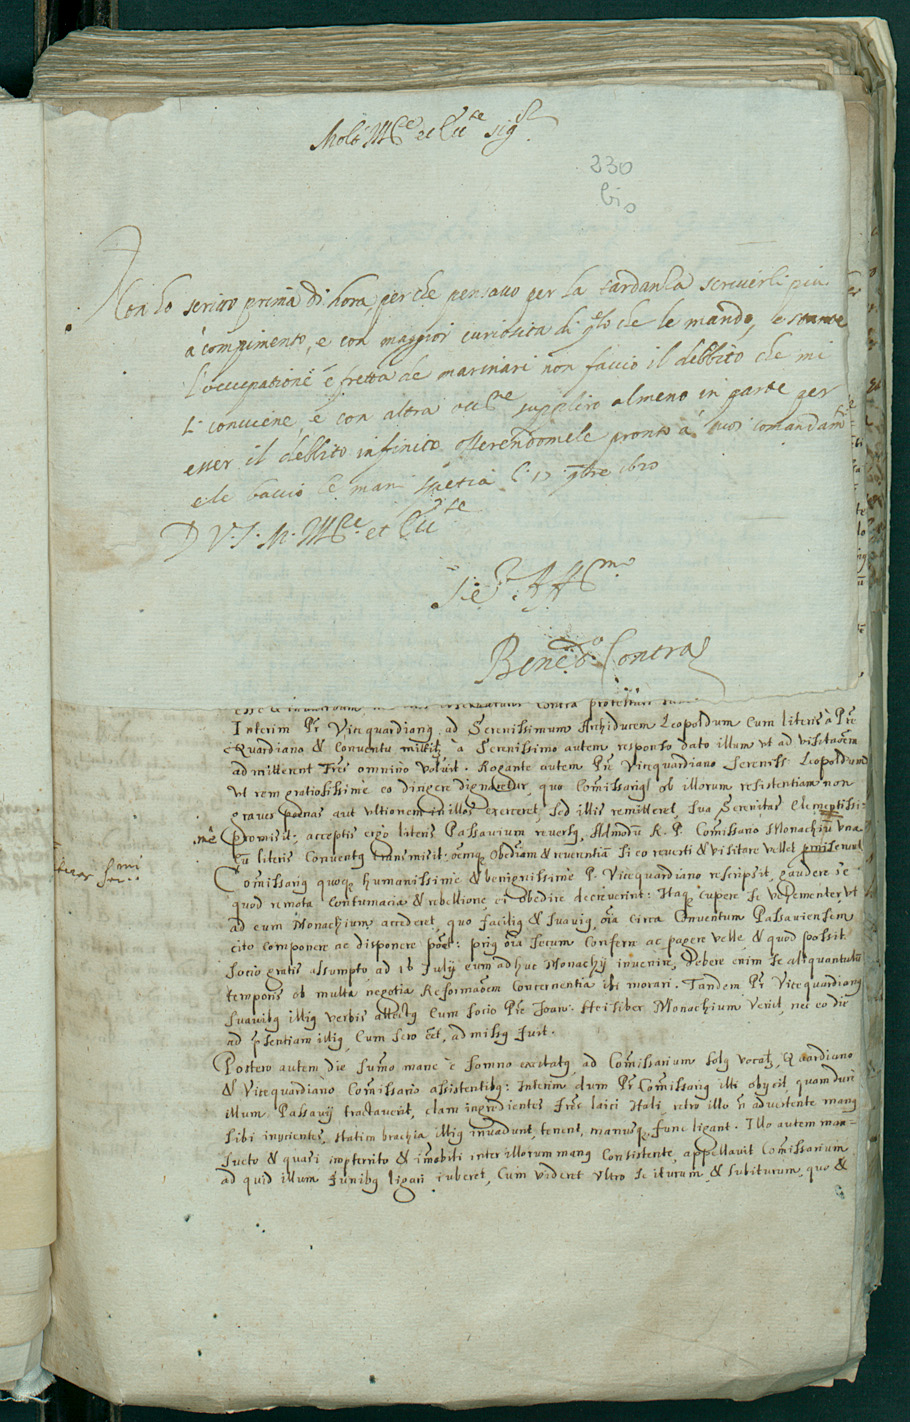 Molt. Mce. et Ecc.te sig.r
230
bis
Non ho scritto prima di hora, perche pensavo per la tardanza scriverli piu
à compimento, e con maggior curiosita di q.lo che le mando, e stante
l'occupatione é fretta de marinari non faccio il debbito che mi
si conviene, é con altra occ.ne supplirò almeno in parte per
esser il debbito infinito offerendomele pronto a suoi comandam.ti
e le baccio le mani
D V. S. M. Mce. et Ecc.te
Bened.o Contra
contra
Interim Pr Vicequardiang ad Serenissimum Archiducem Leopoldum cum literis à Pre
Quardiano & Conventu mittitz, à Serenissimo autem responso dato illum ut ad visitaõem
admitterent Frēs omnino voluit. Rogante autem Pre Vicequardiano Sereniss: Leopoldum
ut rem gratiosissime eo dirigere dignaretur, quo Com̄issarig ob illorum resistentiam non
graves poenas aut ultionem in illos exerceret, sed illis remitteret, Sua Serenitas clementissi-
mè promisit: acceptis ergo literis Passavium reversg, Admodū R. P. Com̄issario Monachiū una
cū literis Conventg transmisit, oēmq obediam & reverentiā si eo reverti & visitare vellet promiserunt
Com̄issarig quoq humanissimè & benignissimè P. Vicequardiano rescripsit, gaudere se
quod remota contumacia & rebellione ei obedire decreverint: Itaq cupere se vehementer, ut
ad eum Monachium accederet, quo facilig & suavig, oīa circa Conventum Passaviensem
cito componere ac disponere poēt: prig oīa secum conferre ac pagere velle, & quod possit
socio gratis assumpto ad 18 Julij eum adhuc Monachij invenire, debere enim se aliquantulū
temporis ob multa negotia Reformaõem concernentia ibi morari. Tandem Pr Vicequardiang
suavibg illig verbis allectg cum socio Pre Joan: Heisiber Monachium venit, nec eo die
ad pr̄sentiam illig, cum sero eēt, admissg fuit.
Postero autem die sum̄o mane è somno excitatg, ad Com̄issarium solg vocatz, Quardiano
& Vicequardiano Com̄issario assistentibg: Interim dum Pr Com̄issarig illi obijcit, quam durè
illum Passavij tractaverit, clam ingredientes Frēs laici Itali, retro illo ñ advertente mang
sibi inijcientes, statim brachia illig invadunt, tenent, manusq fune ligant. Illo autem man-
sueto & quasi imperterrito & im̄obili inter illorum mang consistente, appellavit Com̄issarium
ad quid illum funibg ligari iuberet, cum videret ultro se iturum, & subiturum, quo &